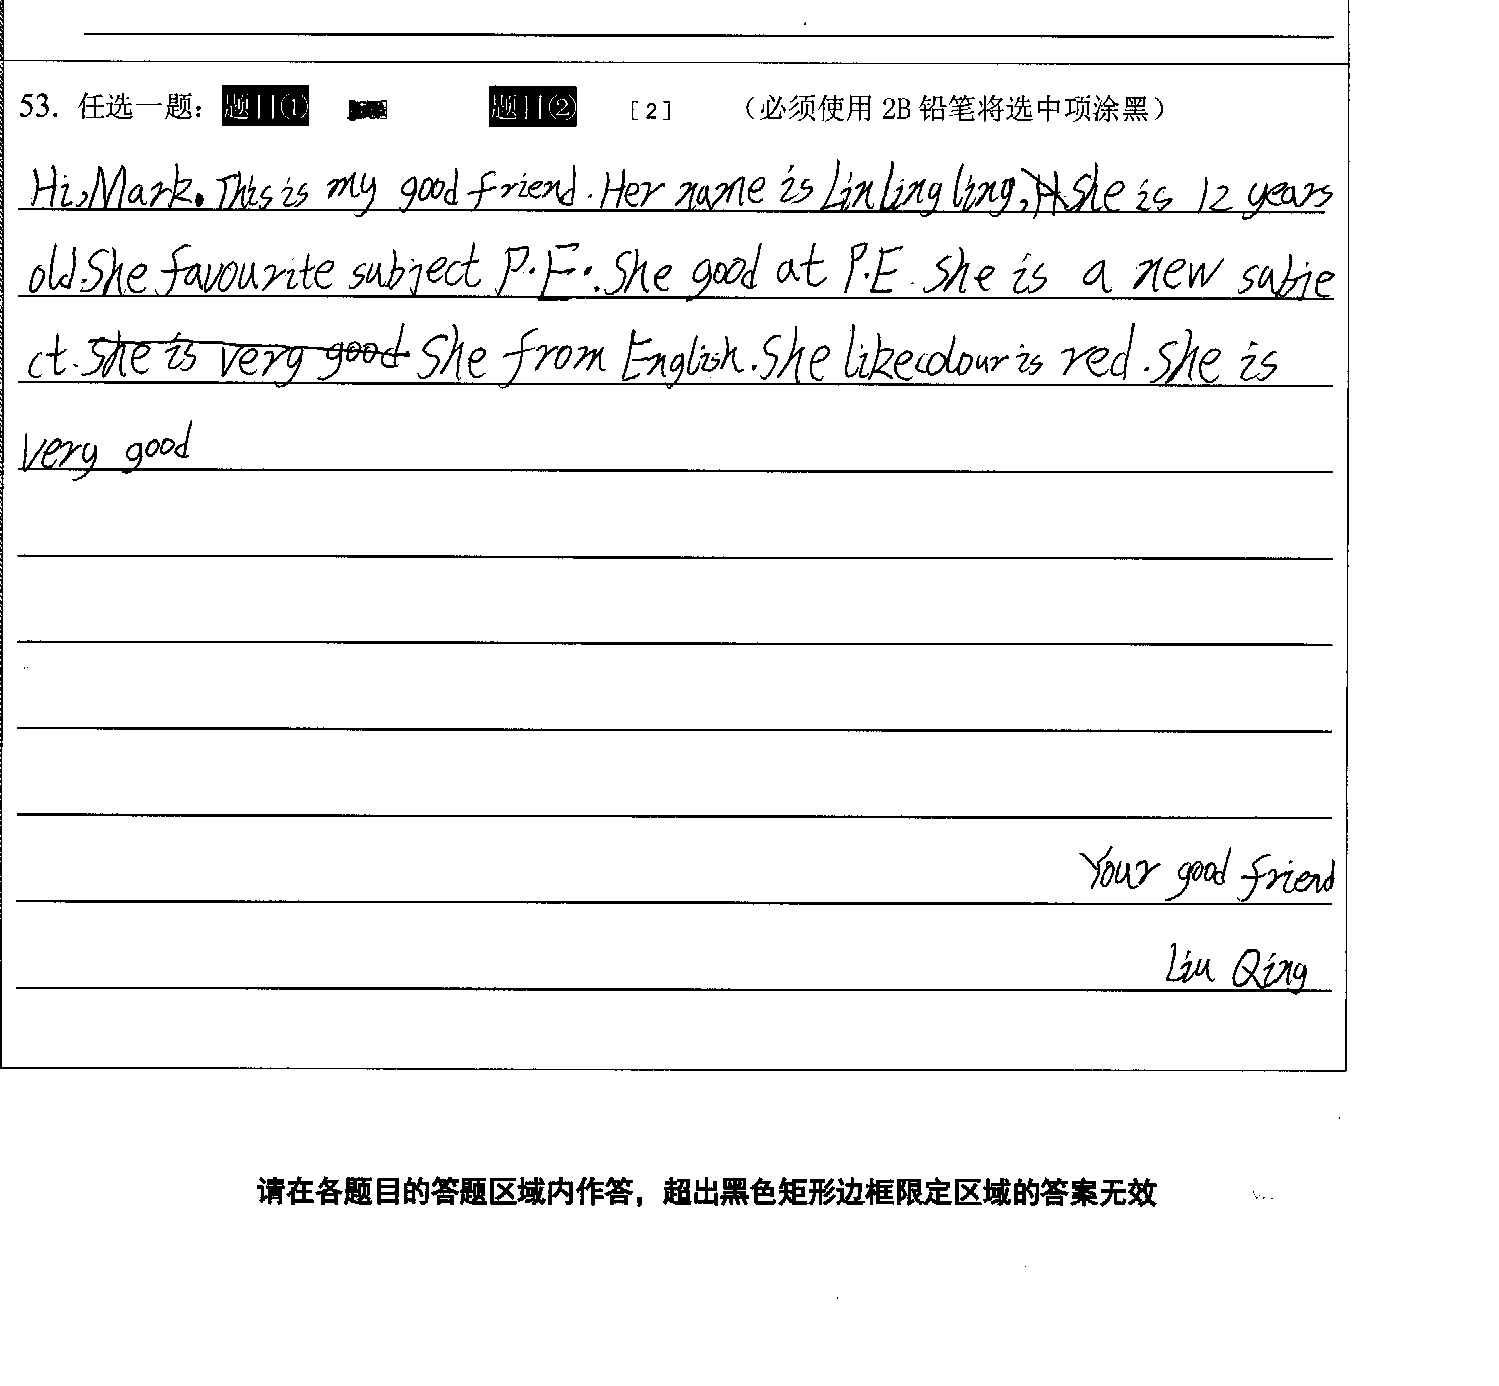 53. 任选一题： 题目① 题目② [2] （必须使用 2B 铅笔将选中项涂黑）
Hi,Mark. This is my good friend. Her name is Lin Ling ling, She is 12 years
old.She favourite subject P.E. She good at P.E. She is a new subje
ct. She is very good She from English. She likecolour is red. She is
very good
Your good friend
Liu Qing
请在各题目的答题区域内作答，超出黑色矩形边框限定区域的答案无效